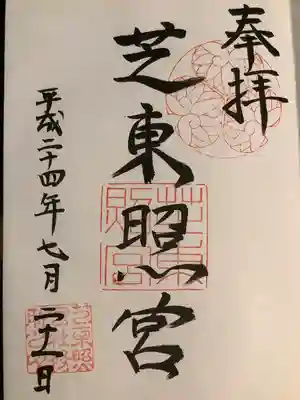 奉拝
芝東照宮
芝東
照宮
平成二十四年七月二十一日